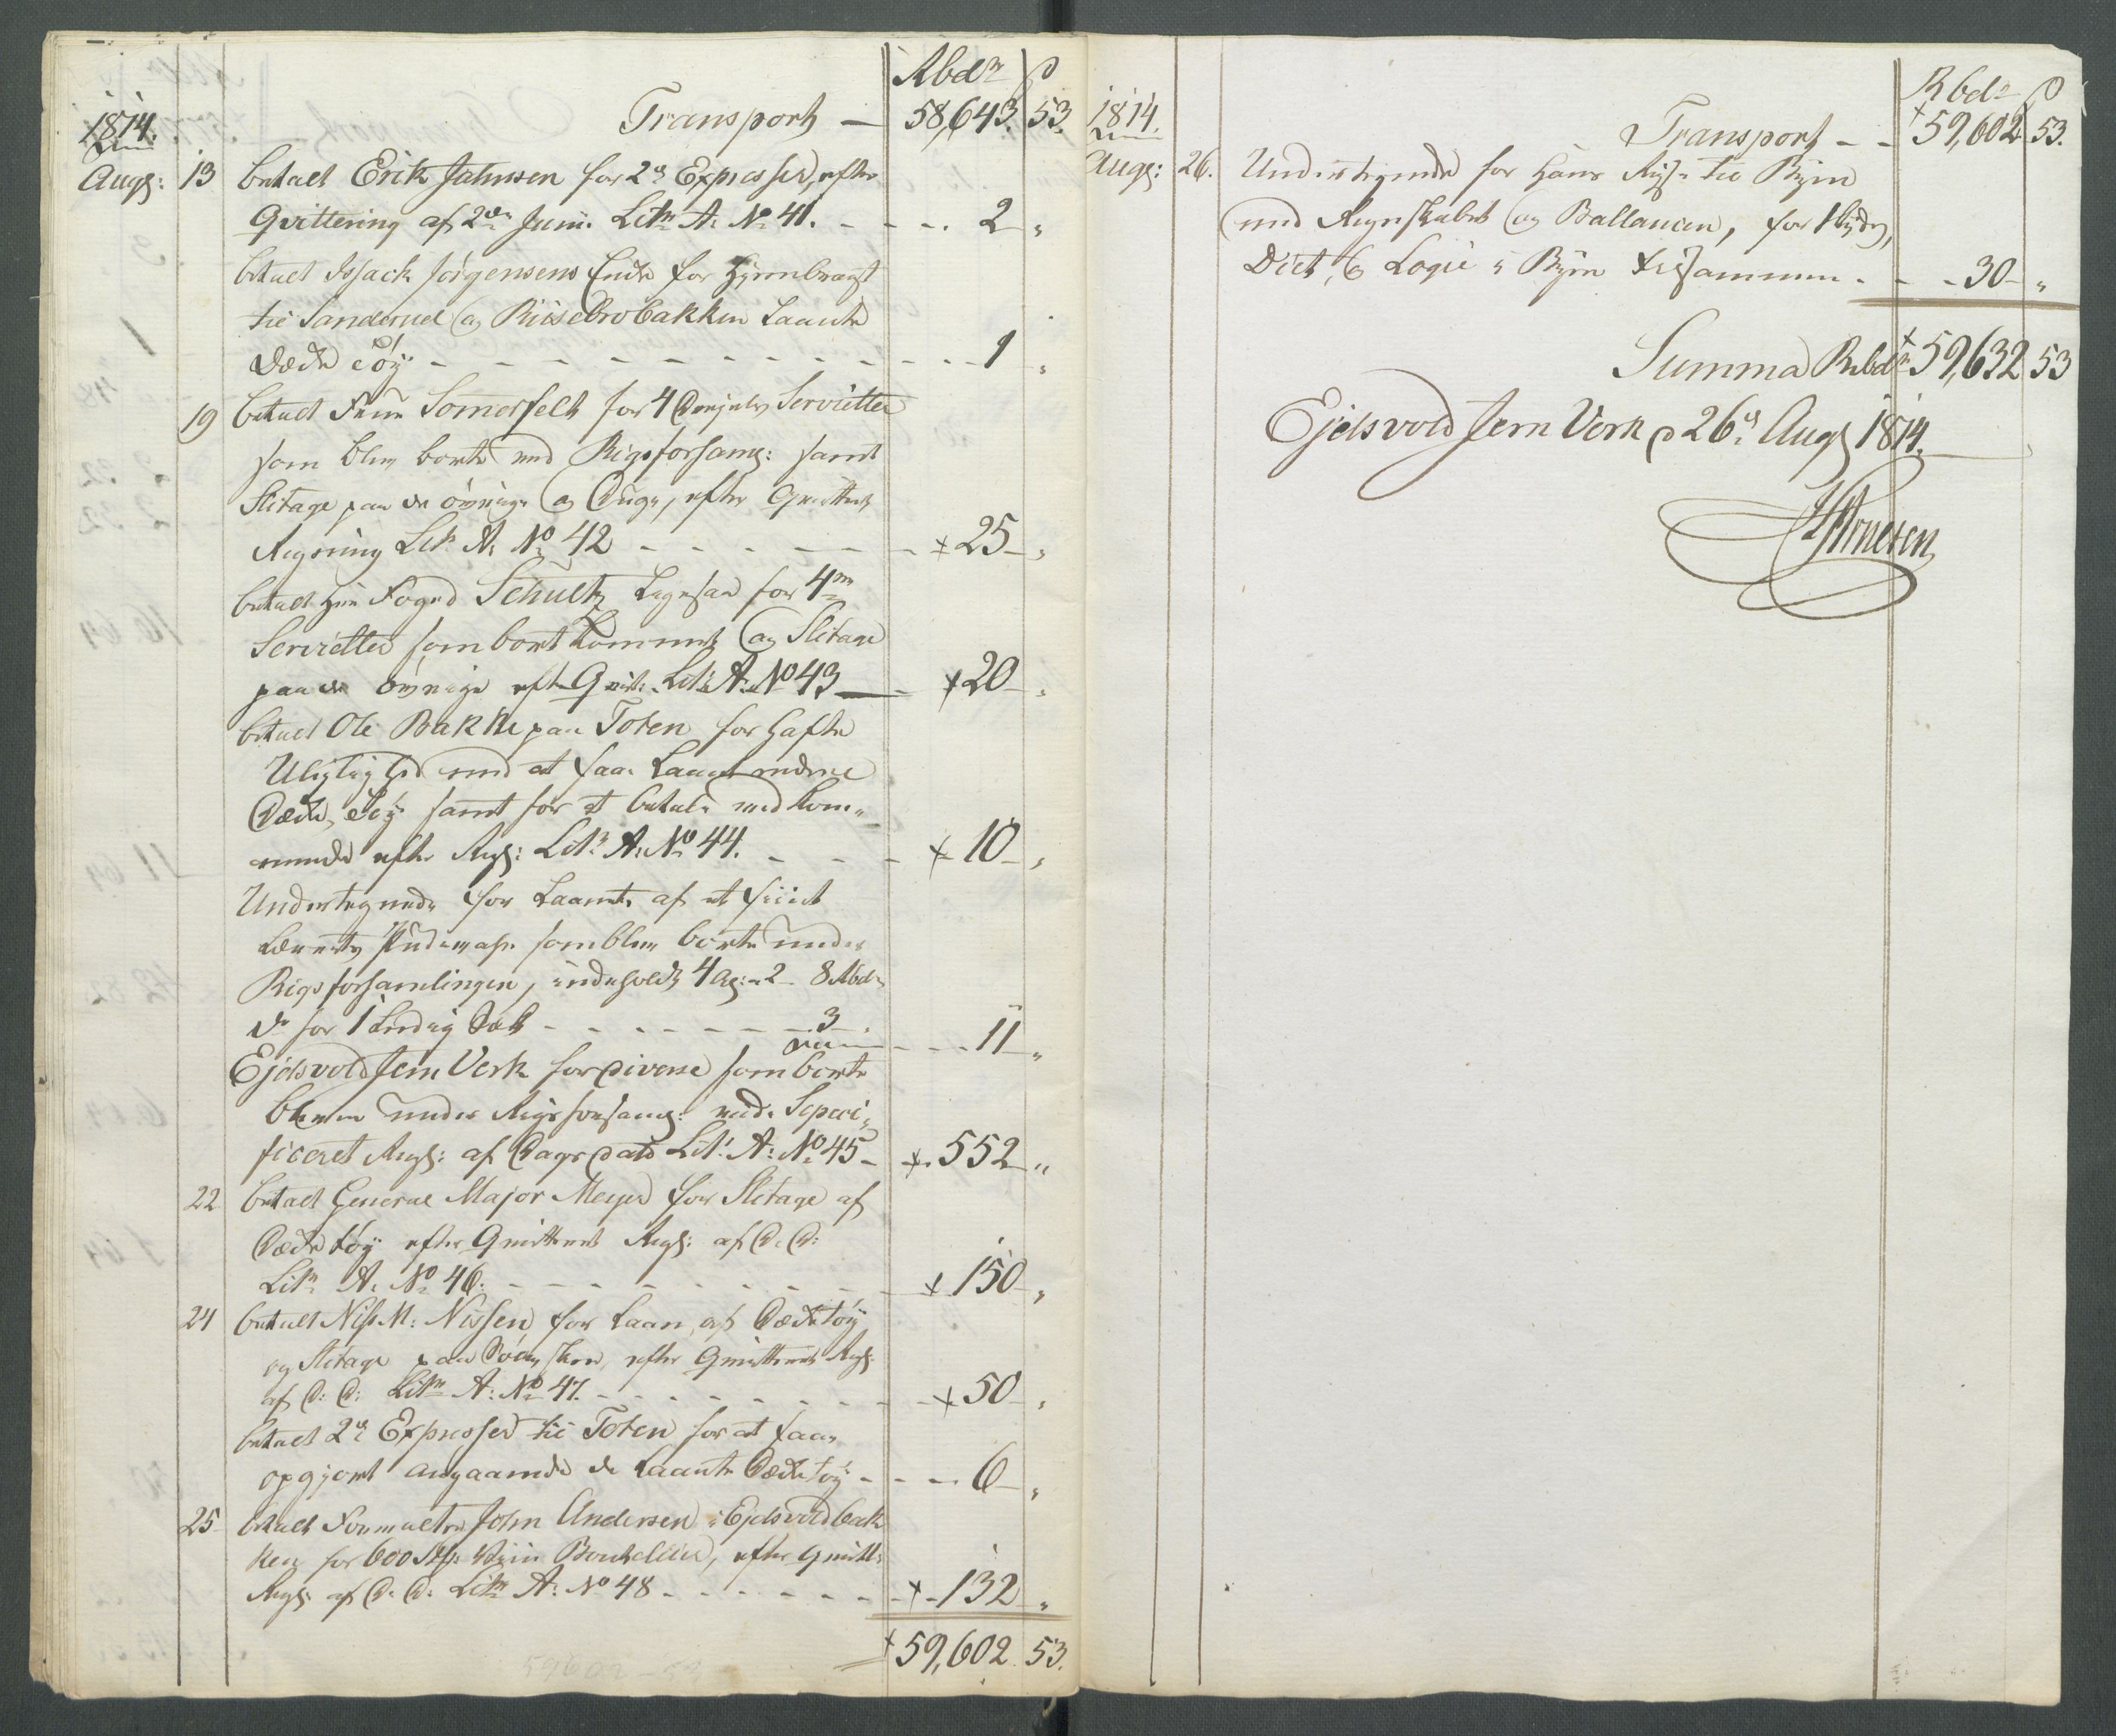 Rbdr ß
1814. Transport — 58,643. 53.
Augs: 13 betalt Erik Johnsen for 2de Expresser, efter
Qvittering af 2den Junii. Litr A. No 41. - - - 2 "
betalt Issack Jörgensens Enke for Hjembragt
til Sanderud og Riisebrobakken Laante
Dække Töy - - - - - - 1 "
19 betalt Frue Somerfelt for 4 Dreyels Servietter
som blev borte ved Rigsforsamg: samt
Slitage paa de övrige og Duge, efter Qvitteret
Regning Litr A. No 42 - - - - - 25 - "
betalt Herr Foged Schultz Ligesaa for 4re
Servietter som bort kommet og Slitage
paa de övrige eft Qvit: Litr A. No 43 — 20 - "
betalt Ole Bakke paa Toten for hafte
Uleylighed med at faa Laant
Dække Töy samt for at betale ved kom-
mende efter Regs: Litr A. No 44. - - - 10 - "
Undertegnede for Laante af et fiint
Lærrets Pudevaar som blev borte under
Rigsforsamlingen, indeholdt 4 al: a 2 - 8 Rbd
de for 1 Sæk - - - - - - 3 .
- - - 11 - "
Ejdsvold Jern Verk for Diverse som borte
bleven under Rigsforsamg: vide Speci-
ficeret Regs: af Dags Dato Litr A: No 45 - 552 "
22 betalt General Major Meyer for Slitage af
Dække töy efter Qvitteret Regs: af D. D:
Litr A. No 46. - - - - - - 150 - "
24 betalt Niss M: Nissen for Laan af Dække töy
og Slitage paa efter Qvitteret Regs:
af D: D: Litr A: No 47. - - - - - 50 - "
betalt 2de Expresser til Toten for at faa
opgjort angaaende de Laante Dække töy - - - 6 - "
25 betalt Formulter John Andersen i Ejdsvoldbak
ken for 600 Stk: Viin Bouteiller, efter Qvitt:
Regs: af D. D: Litr A: No 48 - - - - - 132 - "
59,602. 53.
Rbdr ß
1814. Transport - - 59,602 53.
Augs: 26. Undertegnede for Hans Reyse til Byen
med Regnskabet og Ballancen, for Skyds,
Diet, & Logie i Byen tilsammen - - - 30 - "
Summa Rbdr 59,632 53
Ejdsvold Jern Verk d 26de Augs 1814.
Arnesen